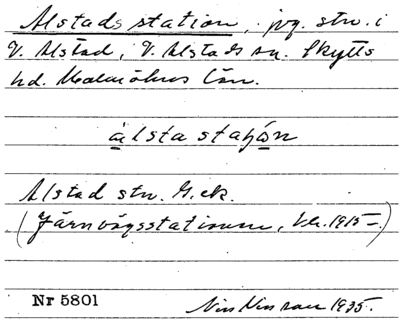 Alstads station, jvg. stn. i
V. Alstad, V. Alstads sn. Skytts
hd. Malmöhus län.
alsta staʃon
Alstad stn. G.ek.
(Järnvägsstationen, bl. 1915–.)
Nr 5801 Nils Nilsson 1935.